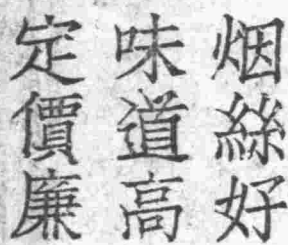 烟絲好
味道高
定價廉